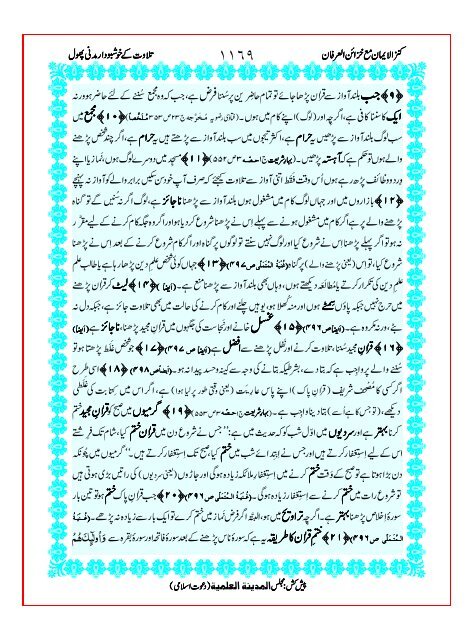 کنز الایمان مع خزائن العرفان ١١٦٩ تلاوت کے خوشبودار مدنی پھول
﴿٩﴾ جب بلند آواز سے قرآن پڑھا جائے تو تمام حاضرین پر سُننا فرض ہے، جب کہ وہ مجمع سُننے کے لئے حاضر ہو ورنہ
ایک کا سننا کافی ہے، اگرچہ اور (لوگ) اپنے کام میں ہوں۔ ﴿١٠﴾ مجمع میں
سب لوگ بلند آواز سے پڑھیں یہ حرام ہے، اکثر تیجوں میں سب بلند آواز سے پڑھتے ہیں یہ حرام ہے، اگر چند شخص پڑھنے
والے ہوں تو حکم ہے کہ آہستہ پڑھیں۔ (بہارِ شریعت ج١ حصہ ٣ ص ٥٥٢) ﴿١١﴾ مسجد میں دوسرے لوگ ہوں، نماز یا اپنے
ورد و وظائف پڑھ رہے ہوں اُس وقت فقط اتنی آواز سے تلاوت کیجئے کہ صرف آپ خود سن سکیں برابر والے کو آواز نہ پہنچے
﴿١٢﴾ بازاروں میں اور جہاں لوگ کام میں مشغول ہوں بلند آواز سے پڑھنا ناجائز ہے، لوگ اگر نہ سنیں گے تو گناہ
پڑھنے والے پر ہے اگر کام میں مشغول ہونے سے پہلے اس نے پڑھنا شروع کر دیا ہو اور اگر وہ جگہ کام کرنے کے لیے مقرّر
نہ ہو تو اگر پہلے پڑھنا اس نے شروع کیا اور لوگ نہیں سنتے تو لوگوں پر گناہ اور اگر کام شروع کرنے کے بعد اس نے پڑھنا
شروع کیا، تو اس (یعنی پڑھنے والے) پر گناہ (غنیۃ المتملی ص ٤٩٧) ﴿١٣﴾ جہاں کوئی شخص علمِ دین پڑھا رہا ہے یا طالبِ علم
علمِ دین کی تکرار کرتے یا مطالعہ دیکھتے ہوں، وہاں بھی بلند آواز سے پڑھنا منع ہے۔ (ایضاً) ﴿١٤﴾ لیٹ کر قرآن پڑھنے
میں حرج نہیں جبکہ پاؤں سمٹے ہوں اور منہ کُھلا ہو، یوہیں چلنے اور کام کرنے کی حالت میں بھی تلاوت جائز ہے، جبکہ دل نہ
بٹے، ورنہ مکروہ ہے۔ (ایضاً ص ٤٩٦) ﴿١٥﴾ غسل خانے اور نجاست کی جگہوں میں قرآنِ مجید پڑھنا، ناجائز ہے (ایضاً)
﴿١٦﴾ قرآن مجید سُننا، تلاوت کرنے اور نفل پڑھنے سے افضل ہے (ایضاً ص ٤٩٧) ﴿١٧﴾ جو شخص غلط پڑھتا ہو تو
سننے والے پر واجب ہے کہ بتا دے، بشرطیکہ بتانے کی وجہ سے کینہ و حسد پیدا نہ ہو۔ (ایضاً ص ٤٩٨) ﴿١٨﴾ اسی طرح
اگر کسی کا مُصحف شریف (قرآن پاک) اپنے پاس عارِیَت (یعنی وقتی طور پر لیا ہوا) ہے، اگر اس میں کِتابت کی غلطی
دیکھے، (تو جس کا ہے اُسے) بتا دینا واجب ہے۔ (بہارِ شریعت ج١ حصہ ٣ ص ٥٥٣) ﴿١٩﴾ گرمیوں میں صبح کو قرآن مجید ختم
کرنا بہتر ہے اور سردیوں میں اوّل شب کو کہ حدیث میں ہے: ”جس نے شروع دن میں قرآن ختم کیا، شام تک فرشتے
اس کے لیے استغفار کرتے ہیں اور جس نے ابتدائے شب میں ختم کیا، صبح تک استغفار کرتے ہیں۔“ گرمیوں میں چونکہ
دن بڑا ہوتا ہے تو صبح کے وقت ختم کرنے میں استغفارِ ملائکہ زیادہ ہوگی اور جاڑوں (یعنی سردیوں) کی راتیں بڑی ہوتی ہیں
تو شروع رات میں ختم کرنے سے استغفار زیادہ ہوگی۔ (غنیۃ المتملی ص ٤٩٦) ﴿٢٠﴾ جب قرآنِ پاک ختم ہو تو تین بار
سورۂ اخلاص پڑھنا بہتر ہے۔ اگرچہ تراویح میں ہو، البتہ اگر فرض نماز میں ختم کرے تو ایک بار سے زیادہ نہ پڑھے۔ (غنیۃ
المتملی ص ٤٩٦) ﴿٢١﴾ ختمِ قرآن کا طریقہ یہ ہے کہ سورۂ ناس پڑھنے کے بعد سورۂ فاتحہ اور سورۂ بقرہ سے وَاُولٰٓئِكَ هُمُ
پیش کش: مجلس المدینۃ العلمیۃ (دعوتِ اسلامی)